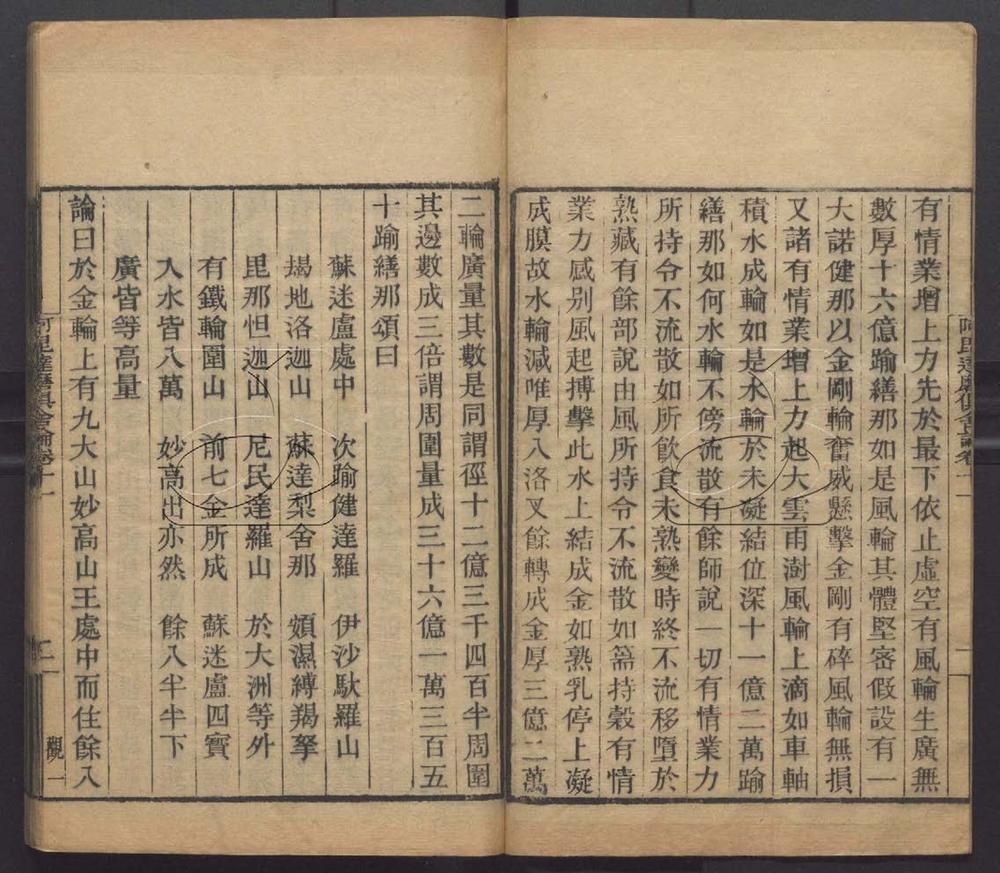 有情業增上力先於最下依止虛空有風輪生廣無
數厚十六億踰繕那如是風輪其體堅密假設有一
大諾健那以金剛輪奮威懸擊金剛有碎風輪無損
又諸有情業增上力起大雲雨澍風輪上滴如車軸
積水成輪如是水輪於未凝結位深十一億二萬踰
繕那如何水輪不傍流散有餘師說一切有情業力
所持令不流散如所飲食未熟變時終不流移墮於
熟藏有餘部說由風所持令不流散如篅持穀有情
業力感別風起搏擊此水上結成金如熟乳停上凝
成膜故水輪減唯厚八洛叉餘轉成金厚三億二萬
二輪廣量其數是同謂徑十二億三千四百半周圍
其邊數成三倍謂周圍量成三十六億一萬三百五
十踰繕那頌曰
蘇迷盧處中 次踰健達羅 伊沙馱羅山
朅地洛迦山 蘇達梨舍那 頞濕縛羯拏
毘那怛迦山 尼民達羅山 於大洲等外
有鐵輪圍山 前七金所成 蘇迷盧四寶
入水皆八萬 妙高出亦然 餘八半半下
廣皆等高量
論曰於金輪上有九大山妙高山王處中而住餘八
阿毘達磨俱舍論卷十一
二
觀一